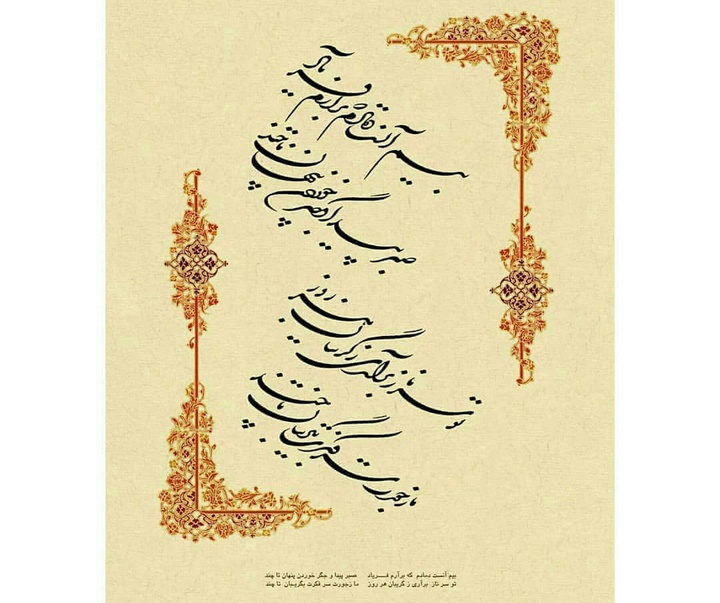 بیم آنست دمادم که برآرم فریاد
صبر پیدا و جگر خوردن پنهان تا چند
تو سر ناز برآری ز گریبان هر روز
ما ز جورت سر فکرت بگریبان تا چند
بیم آنست دمادم که برآرم فـــریاد صبر پیدا و جگر خوردن پنهان تا چند
تو سر ناز برآری ز گریبان هر روز ما زجورت سر فکرت بگریبان تا چند